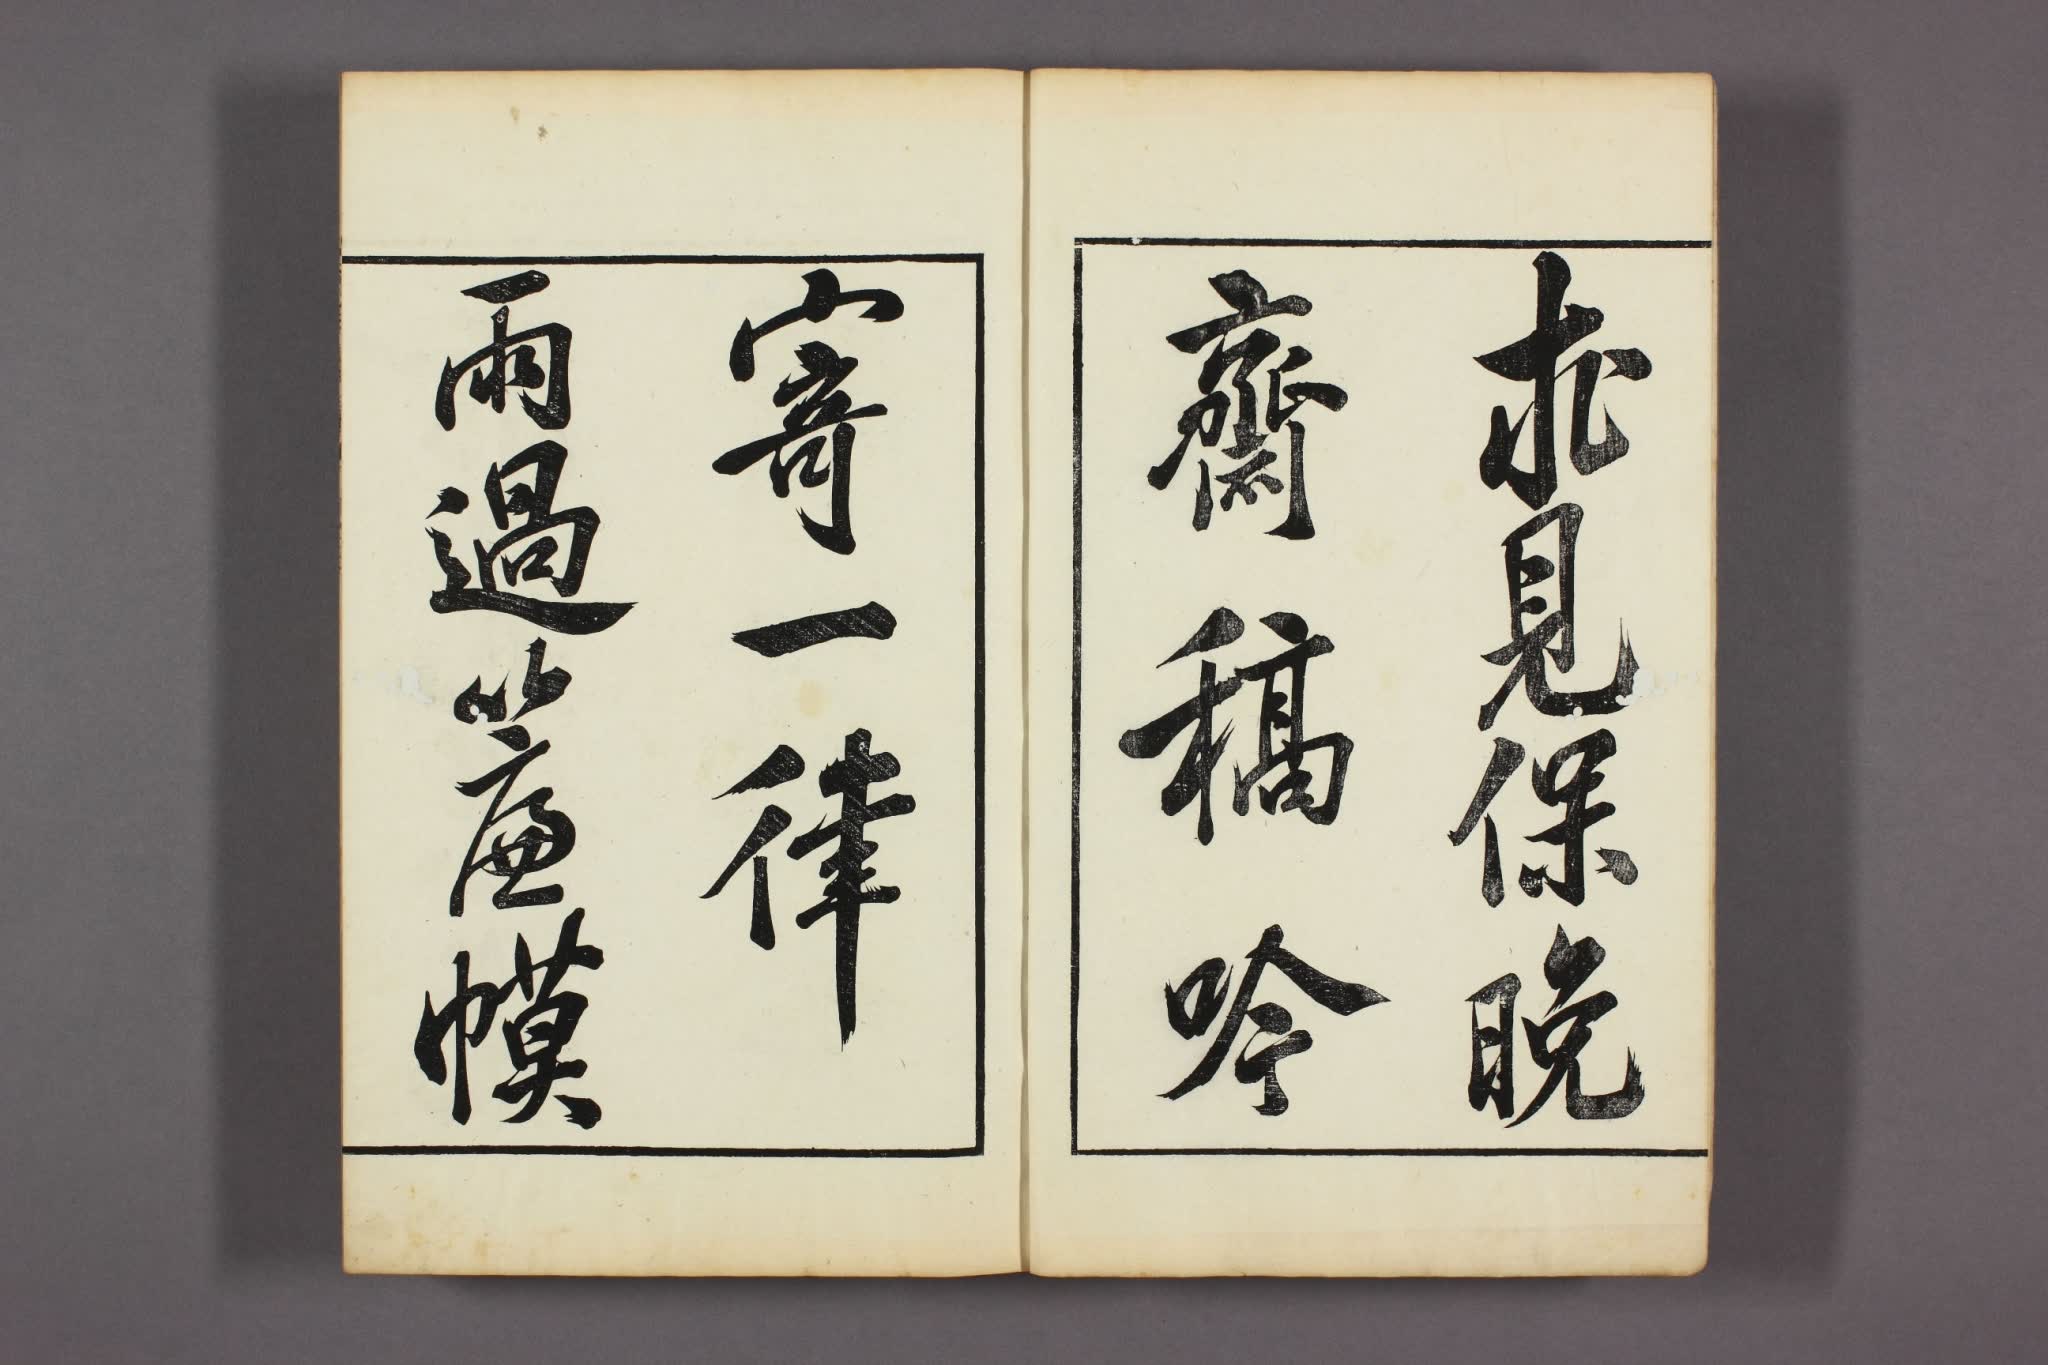 求見保晚
齋稿吟
寄一律
雨過簾幙